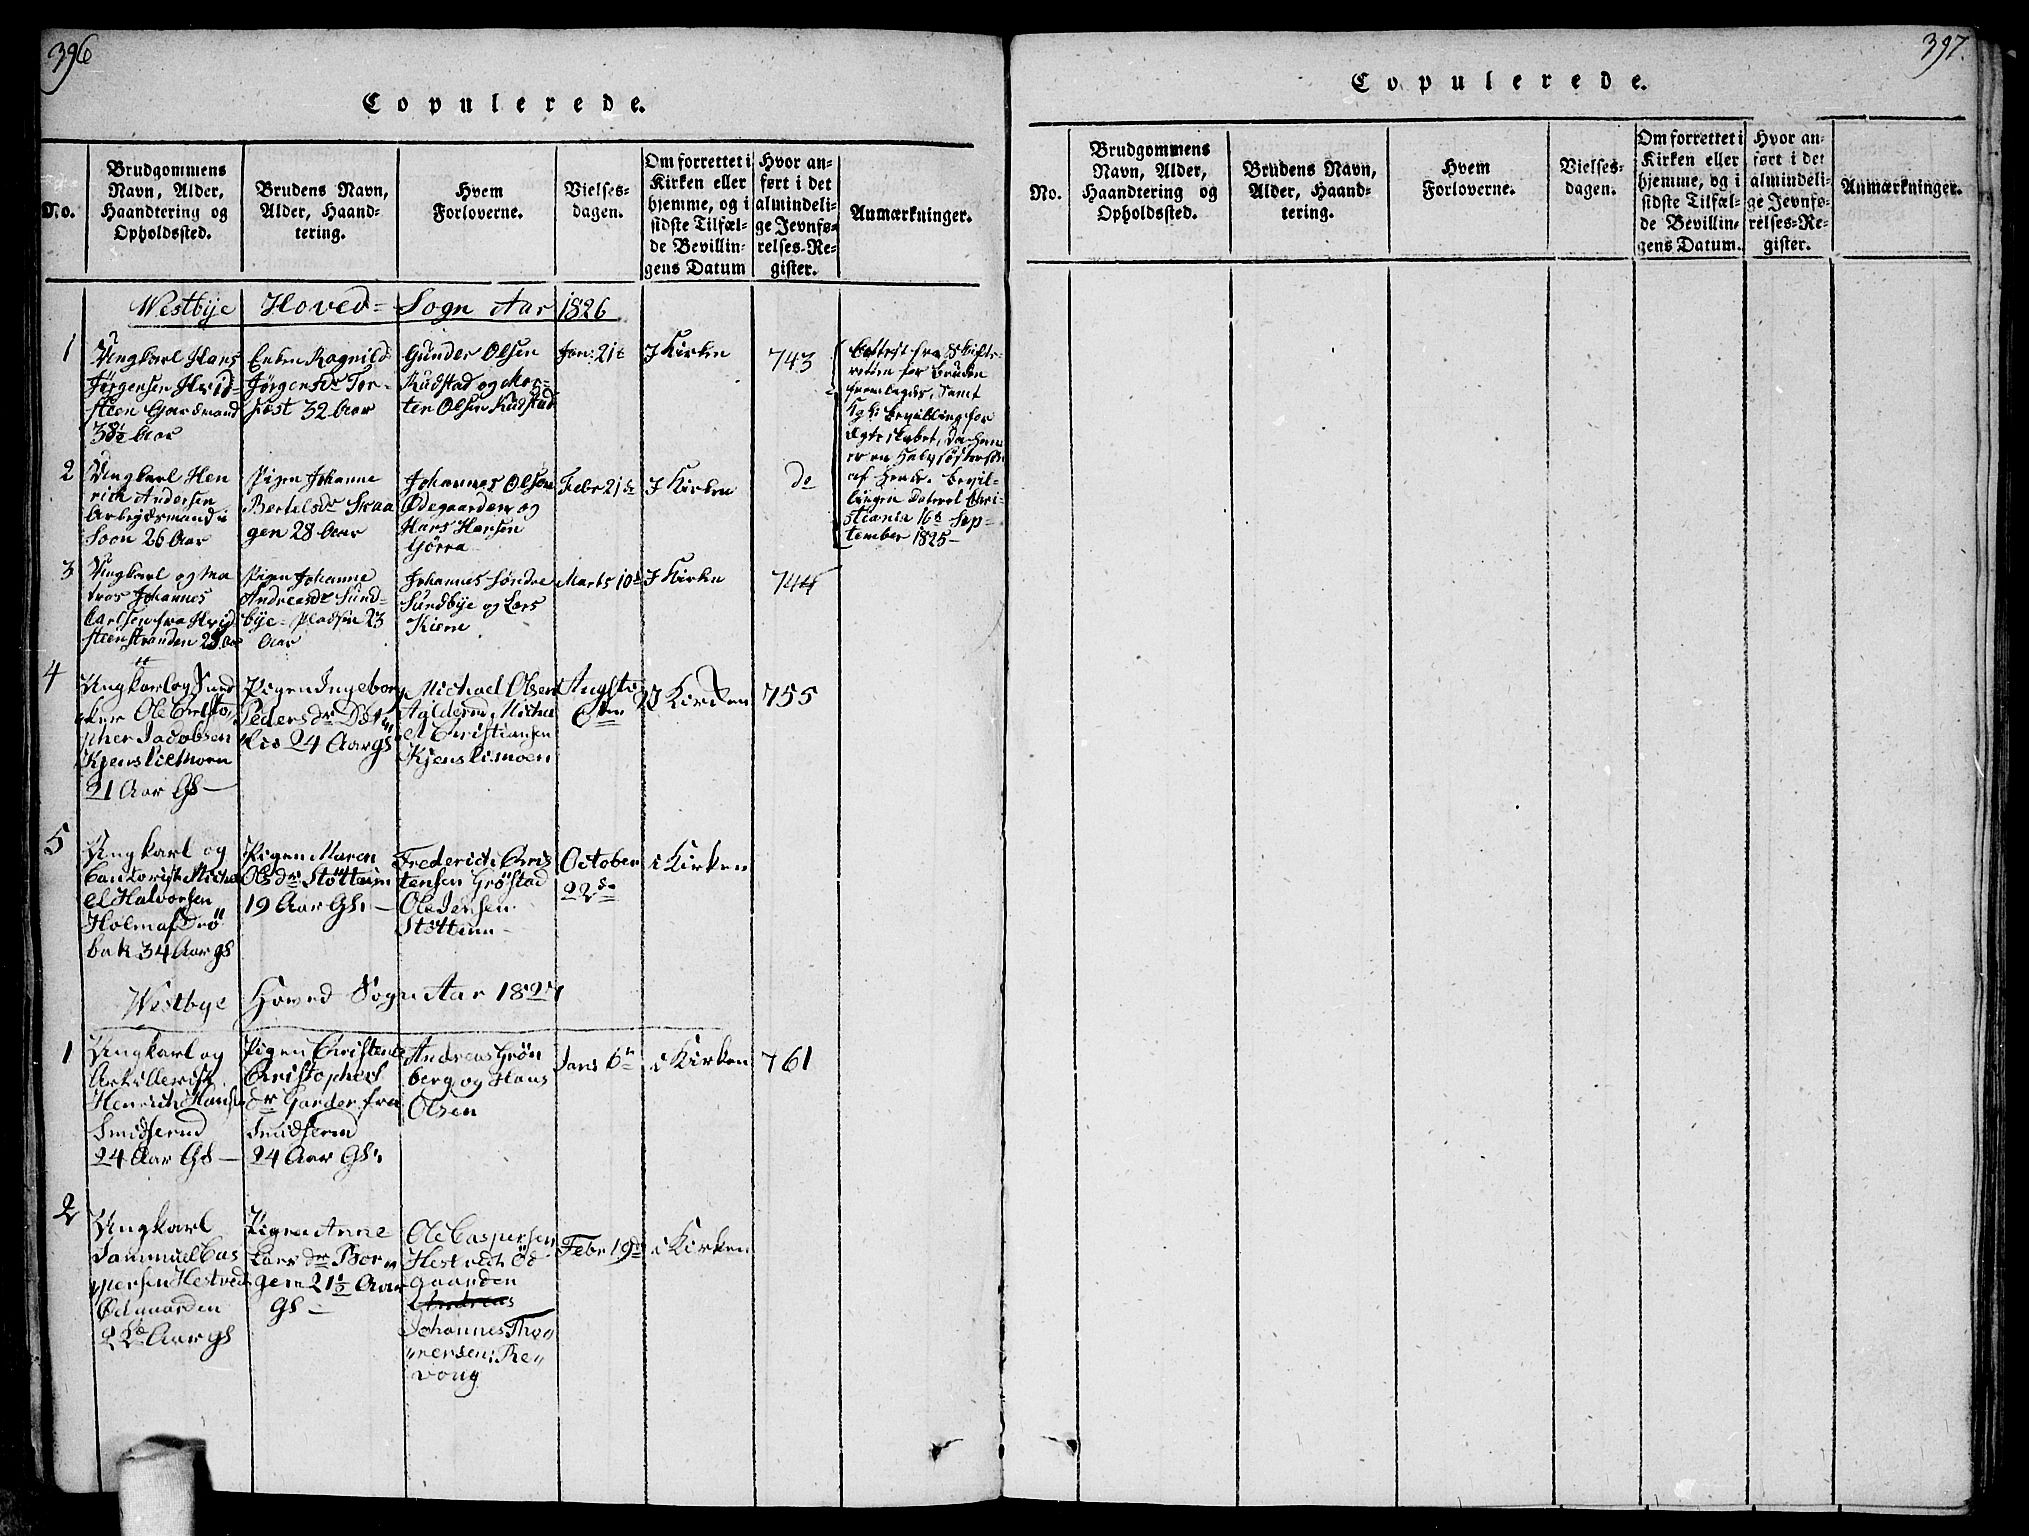 396
Copulerede.
No.
Brudgommens
Navn, Alder,
Haandtering og
Opholdssted.
Brudens Navn,
Alder, Haand-
tering.
Hvem
Forloverne.
Vielses-
dagen.
Om forrettet i
Kirken eller
hjemme, og i
sidste Tilfæl-
de Bevillin-
gens Datum
Hvor an-
ført i det
almindeli-
ge Jevnfø-
relses-Re-
gister.
Anmærkninger.
Westbye Hoved- Sogn Aar 1826
1
Ungkarl Hans
Jörgensen Hvid-
steen Gaardmand
38½ Aar
Enken Ragnild
Jörgensdr Tor-
32 Aar
Gunder Olsen
Rudstad og Mor-
ten Olsen Rudstad
Jan: 21t
I Kirken
743
Attest fra Skifts-
retten for Bruden
fremlagdes, samt
Kgl: Bevilling for
Ægteskabet, da han
er en Halvsöstersön
af hende. Bevil-
lingen dateret Chri-
stiania 16d Sep-
tember 1825-
2
Ungkarl Hen
rich Andersen
Arbejdsmand i
Soon 26 Aar
Pigen Johanne
Bertelsdr Skaa
gen 28 Aar
Johannes Olsen
Ödegaarden og
Hans Hansen
Görra
Febr 21de
I Kirken
do
3
Ungkarl og Ma
tros Johannes
Carlsen fra Hvid
steenstranden 25 Aar
Pigen Johanne
Andreasdr Sund-
bye-Pladsen 23
Aar
Johannes Söndre
Sundbye og Lars
Kierre
Marts 10d
I Kirken
744
4
Ungkarl og Sned
ker Ole Cristo,
pher Jacobsen
21 Aar Gl-
Pigen Ingeborg
Peders dr
lie 24 Aar Gl
Michael Olsen
Michae
el Christiansen
Kjenslimoen
Augsto
6ten
I Kirken
755
5
Ungkarl og
Michæ
el Halvorsen
Holm af Drö
bak 34 Aar gl
Pigen Maren
Olsdr Stöttum
19 Aar Gl. -
Frederich Cris
tensen Gröstad
Ole Jensen
Stöttum -
October
22de
i Kirken
Westbye Hoved Sogn Aar 1827
1
Ungkarl og
Artillerist
Henrich Hansen
Smidserud
24 Aar Gl -
Pigen Christene
Christophers
dr Garder fra
Smidserud
24 Aar Gl.
Andreas Grön
berg og Hans
Olsen
Jans 6te
i Kirken
761
2
Ungkarl
Sammuel Cas
persen Hestved
Ödgaarden
Aar gl
Pigen Anne
Lars dr Bor"
gen 21½ Aar
Gl -
Ole Caspersen
Hestvedt Öd
gaarden
Andreas
Johannes Tho"
mersen, Re"
voug
Febr 19de
i Kirken
397.
Copulerede.
No.
Brudgommens
Navn, Alder,
Haandtering og
Opholdssted.
Brudens Navn,
Alder, Haand-
tering.
Hvem
Forloverne.
Vielses-
dagen.
Om forrettet i
Kirken eller
hjemme, og i
sidste Tilfæl-
de Bevillin-
gens Datum.
Hvor an-
ført i det
almindeli-
ge Jevnfø-
relses-Re-
gister.
Anmærkninger.